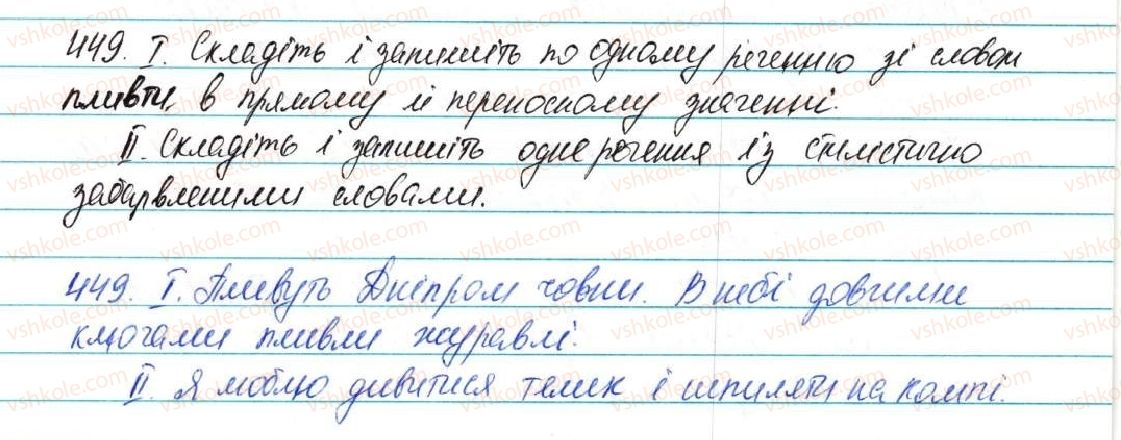 449. I. Складіть і запишіть по одному реченню зі словом
пливти, в прямому й переносному значенні.
II. Складіть і запишіть одне речення із стилістично
забарвленими словами.
449. I. Пливуть Дніпром човни. В небі довгими
ключами пливли журавлі.
II. Я люблю дивитися телик і шпиляти на компі.